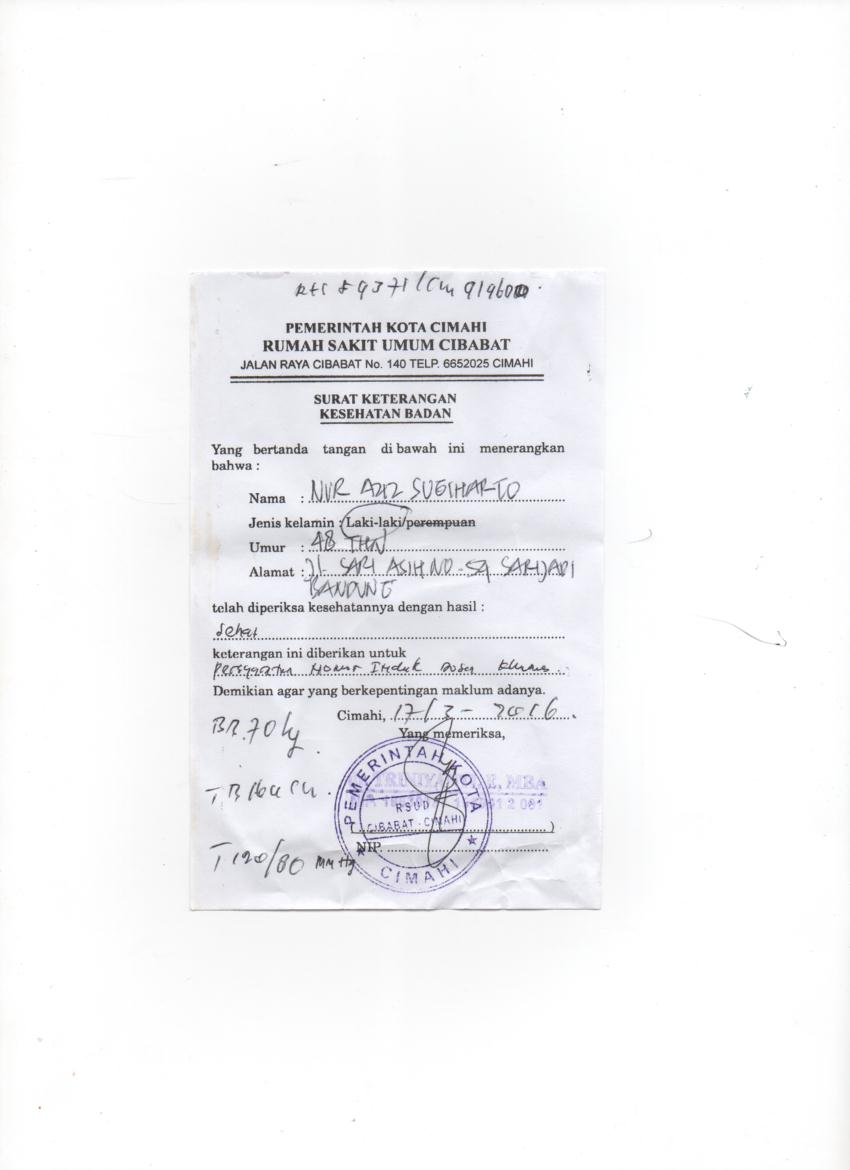 89371/Cm 919600.
PEMERINTAH KOTA CIMAHI
RUMAH SAKIT UMUM CIBABAT
JALAN RAYA CIBABAT No. 140 TELP. 6652025 CIMAHI
SURAT KETERANGAN
KESEHATAN BADAN
Yang bertanda tangan di bawah ini menerangkan
bahwa :
Nama : NUR AZIZ SUGIHARTO
Jenis kelamin : Laki-laki/perempuan
Umur : 48 THN
Alamat : Jl. SARI ASIH NO-59 SARIJADI
BANDUNG
telah diperiksa kesehatannya dengan hasil :
Sehat
keterangan ini diberikan untuk
Persyaratan Nomor Induk Dosen Khusus
Demikian agar yang berkepentingan maklum adanya.
Cimahi, 17/3 - 2016.
Yang memeriksa,
BB. 70 kg.
PEMERINTAH KOTA
, MBA
TB cm.
RSUD
CIBABAT - CIMAHI
( )
NIP.
T 120/80 mmHg
CIMAHI